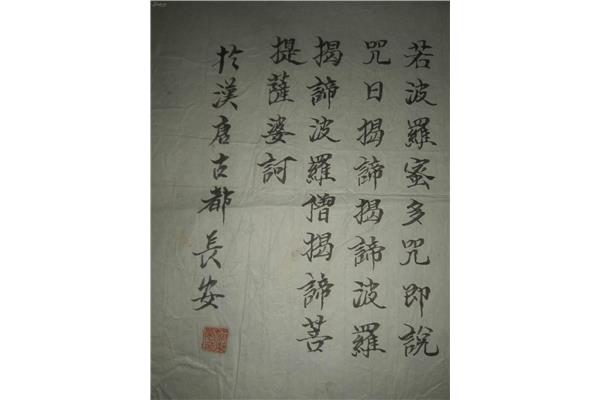 若波羅蜜多咒即說
咒曰揭諦揭諦波羅
揭諦波羅僧揭諦菩
提薩婆訶
於漢唐古都長安